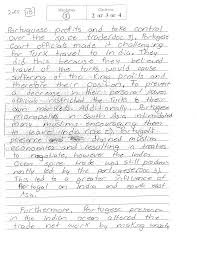 Portuguese profits and take control
over the spice trade (doc 5). Portugese
Court officials made it challenging
for Turk travel to India. They
did this because they believed
travel of the Turks would cause
suffering of the King profits and
therefore their position. To prevent
a decrease in their personal
officials restricted the Turks
own markets. Additionally, Portugese
monopolies in South Asia intimidated
many muslims encouraging them
to leave India (doc 6). Portugal's
presence drained muslim
economies and resulting in treaties
to negotiate, however the Indian
Ocean spice trade was still predom
nantly led by the portugese (Doc 3).
This led to a greater influence of
Portugal on India and south east
Asia.
Furthermore, Portugese presence
in the Indian ocean altered the
trade net work by making